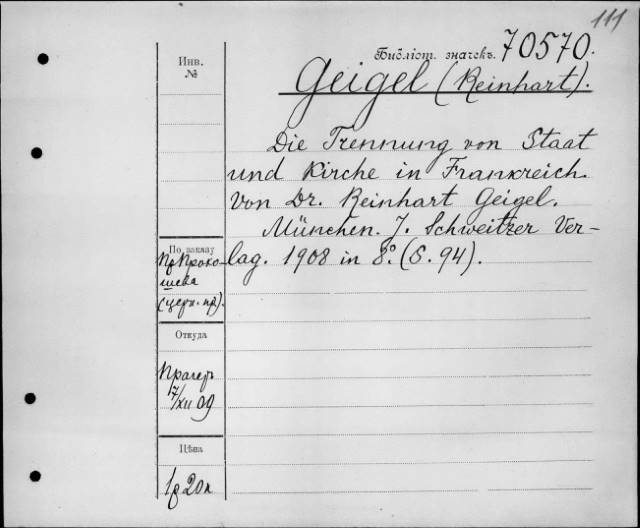 111
Инв.
№
Библіот. значекъ. 70570.
Geigel (Reinhart).
Die Trennung von Staat
und Kirche in Frankreich.
Von Dr. Reinhart Geigel.
München. J. Schweitzer Ver-
lag. 1908 in 8º. (S. 94).
По заказу
Пр Проко-
шева
(церк. пр).
Откуда
Прагеръ
7/XII 09
Цѣна
1р 20к